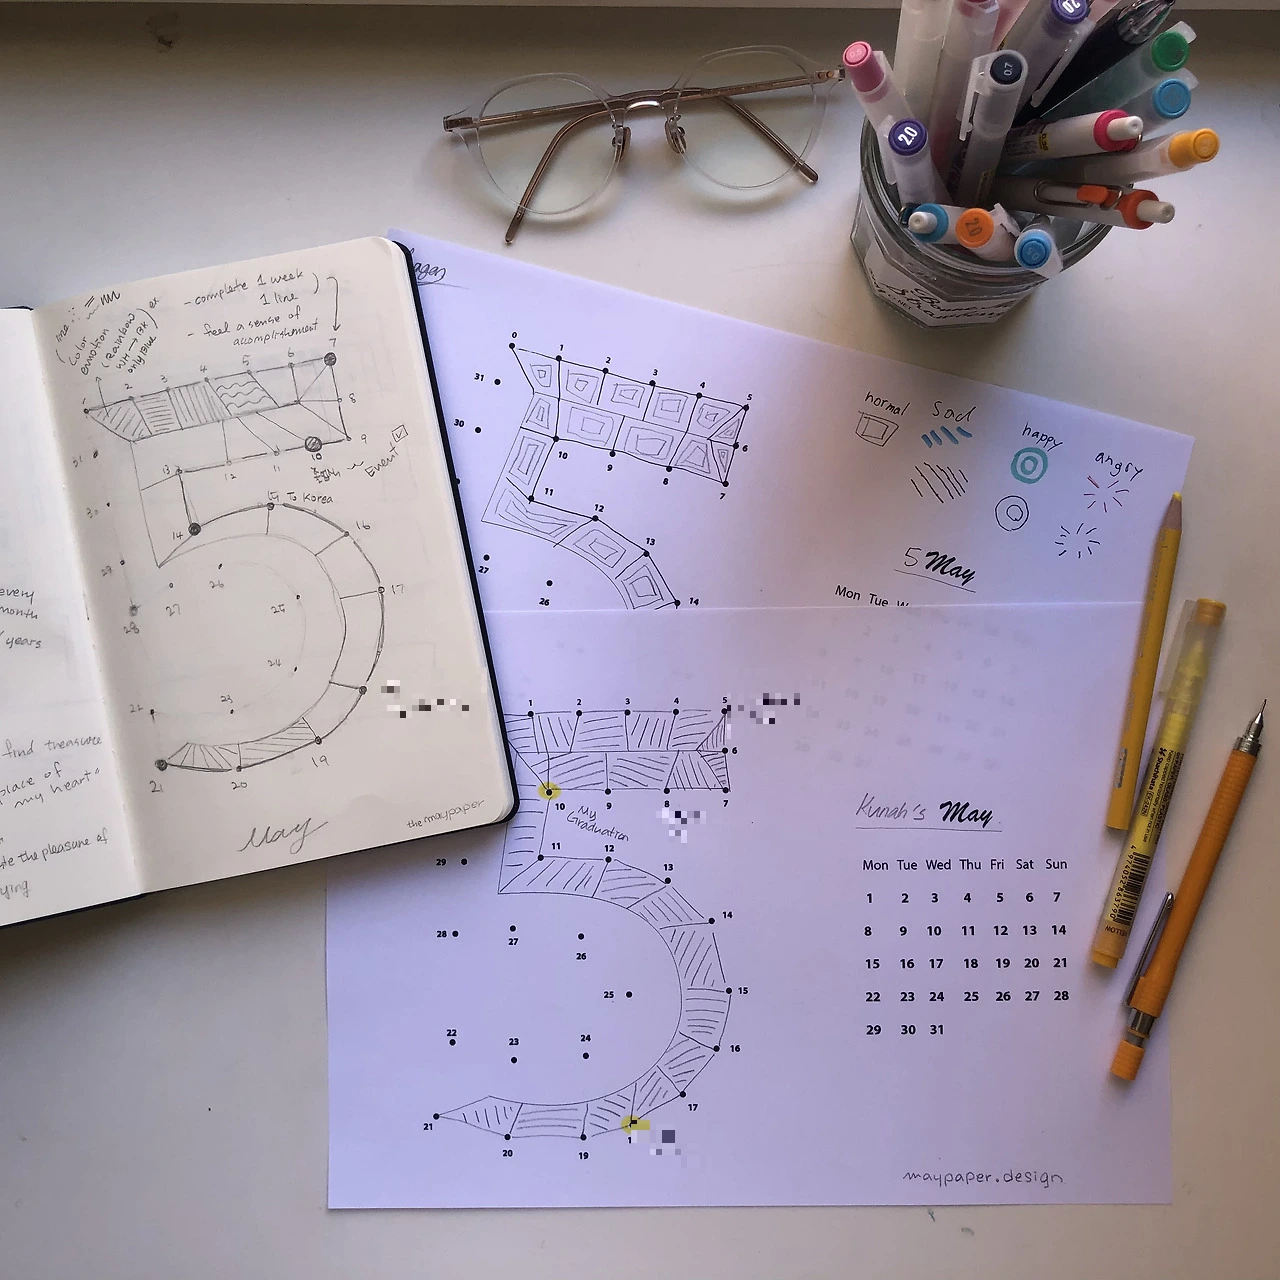 - complete 1 week
1 line
- feel a sense of
accomplishment
line
color
emotion
(Rainbow
WH → BK
only Blue)
2 3 4 5 6 7
8
9
10
11
12
13
Event
14
To Korea
16
17
19
20
21
23
24
25
26
27
28
29
30
31
May
the maypaper
every
month
years
find treasure
place of
my heart"
the pleasure of
0 1 2 3 4 5
6
7
8
9
10
11
12
13
14
31
30
27
26
normal
Sad
happy
angry
5 May
Mon Tue W
1 2 3 4 5
6
7
8
9
10
My
Graduation
11
12
13
14
15
16
17
19
20
21
22
23
24
25
26
27
28
29
Kunah's May
Mon Tue Wed Thu Fri Sat Sun
1 2 3 4 5 6 7
8 9 10 11 12 13 14
15 16 17 18 19 20 21
22 23 24 25 26 27 28
29 30 31
maypaper.design
2.0
0.7
2.0
4974052863790
YELLOW